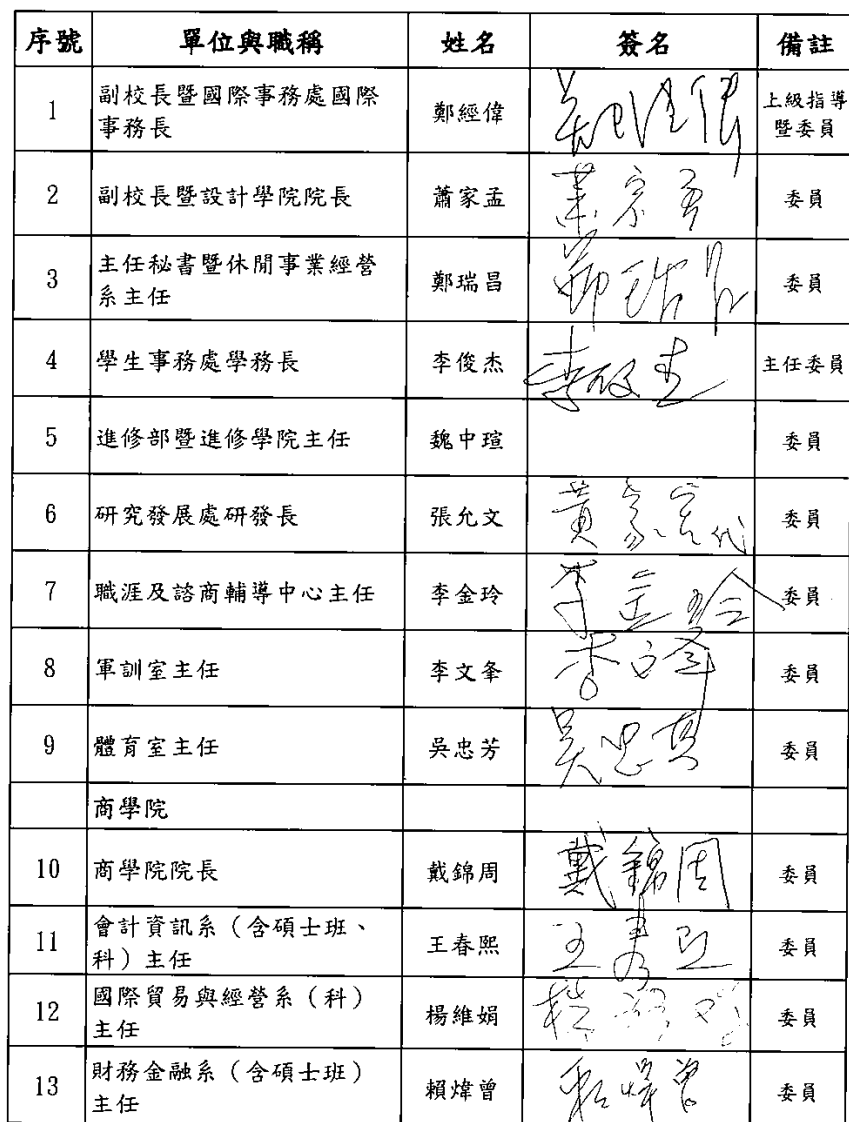 序號 單位與職稱 姓名 簽名 備註
1 副校長暨國際事務處國際 鄭經偉 上級指導
事務長 暨委員
2 副校長暨設計學院院長 蕭家孟 蕭家孟 委員
3 主任秘書暨休閒事業經營 鄭瑞昌 委員
系主任
4 學生事務處學務長 李俊杰 主任委員
5 進修部暨進修學院主任 魏中瑄 委員
6 研究發展處研發長 張允文 委員
7 職涯及諮商輔導中心主任 李金玲 李金玲 委員
8 軍訓室主任 李文夆 委員
9 體育室主任 吳忠芳 委員
商學院
10 商學院院長 戴錦周 戴錦周 委員
11 會計資訊系（含碩士班、 王春熙 委員
科）主任
12 國際貿易與經營系（科） 楊維娟 委員
主任
13 財務金融系（含碩士班） 賴煒曾 賴煒曾 委員
主任